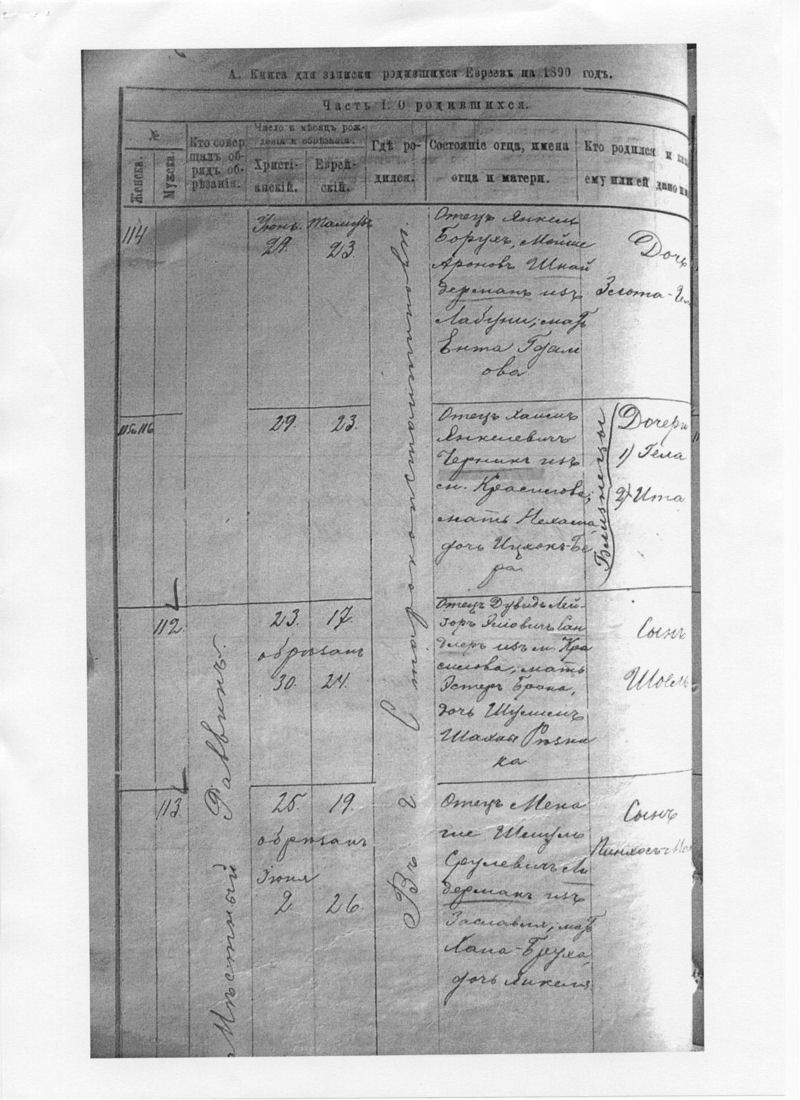 А. Книга для записки родившихся Евреевъ на 1890 годъ.
Часть I. О родившихся.
№
Женска.
Мужска.
Кто совер
шалъ об-
рядъ об-
рѣзанія.
Число и мѣсяцъ рож-
денія и обрѣзанія.
Христі-
анскій.
Еврей-
скій.
Гдѣ ро-
дился.
Состояніе отца, имена
отца и матери.
Кто родился и
ему или ей дано
Мѣстный Раввинъ.
Въ г. Староконстантиновѣ.
114
Іюнь Тамузъ
29. 23.
Отецъ Янкель
Борухъ, Мойше
Ароновъ Шнай
дерманъ изъ
Лабуни, мать
Ента
ова
Дочь
Злота-
115 и 116
29. 23.
Отецъ Хаимъ
Янкелевичъ
Черникъ изъ
м. Красилова,
мать Нехама
дочь Ицхокъ-Бе
ра
Близнецы
Дочери
1) Гела
2) Ита
112
23. 17.
обрѣзанъ
30. 24.
Отецъ Дувидъ Лей-
зоръ Сан
длеръ изъ м. Кра
силова, мать
Эстеръ
дочь
Рѣзни
ка
Сынъ
113.
25. 19.
обрѣзанъ
Іюля
2 26.
Отецъ Мена
ше Шмуль
Срулевичъ Ли
дерманъ изъ
Заславля, мать
Хана-Бруха,
дочь Янкеля
Сынъ
Пинхосъ